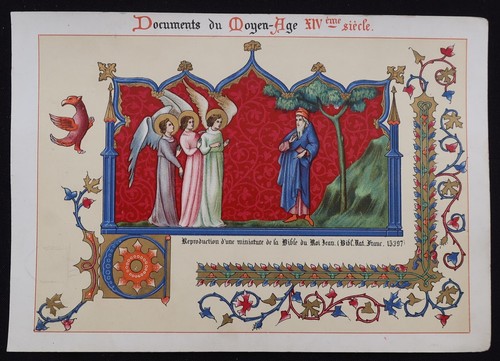 Documents du Moyen-Age XIV ème siècle.
Reproduction d'une miniature de la Bible du Roi Jean. (Bibl. Nat. Franc. 15397)